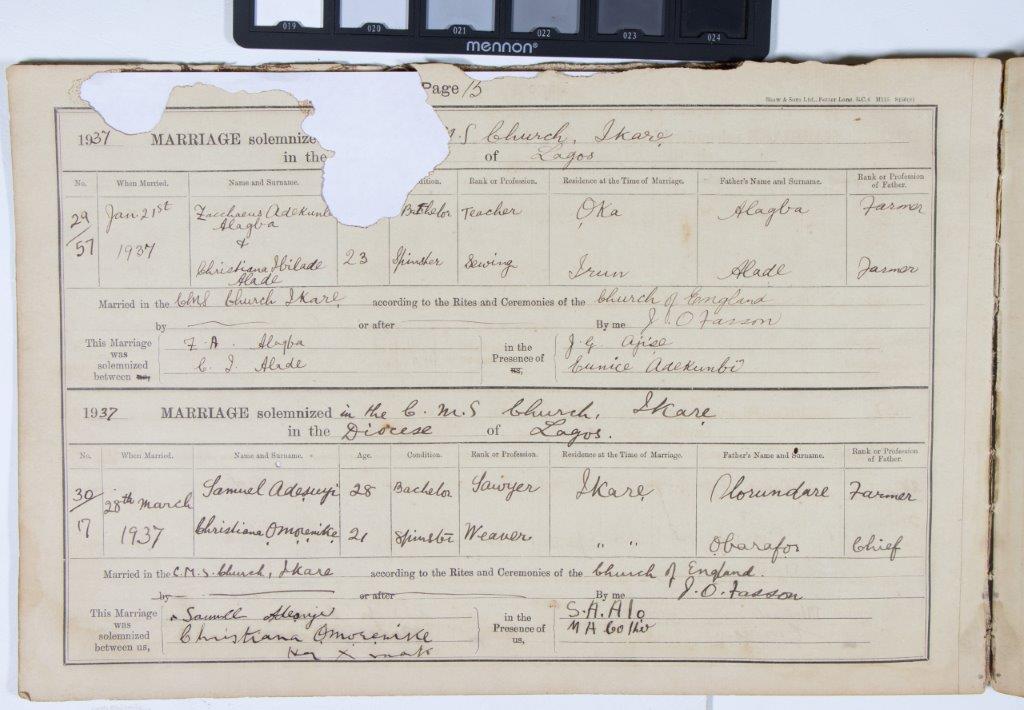 019 020 021 022 023 024
mennon®
Page 13
Shaw & Sons Ltd., Fetter Lane, E.C.4
1937 MARRIAGE solemnize M.S Church, Ikare
in the of Lagos
No. When Married. Name and Surname. dition. Rank or Profession. Residence at the Time of Marriage. Father's Name and Surname. Rank or Profession of Father.
29/57 Jan 21st 1937 Zacchaeus Adekunl Alagba Bachelor Teacher Ọka Alagba Farmer
&
Christiana Ibilade Alade 23 Spinster Sewing Irun Alade Farmer
Married in the C.M.S Church Ikare according to the Rites and Ceremonies of the Church of England
by or after By me J. O Fasson
This Marriage was solemnized between us, Z. A. Alagba in the Presence of us, J. G. Ajise
C. I. Alade Eunice Adekunbi
1937 MARRIAGE solemnized in the C. M. S Church, Ikare
in the Diocese of Lagos.
No. When Married. Name and Surname. Age. Condition. Rank or Profession. Residence at the Time of Marriage. Father's Name and Surname. Rank or Profession of Father.
30/17 28th March 1937 Samuel Adesuyi 28 Bachelor Sawyer Ikare Olorundare Farmer
Christiana Omorenike 21 Spinster Weaver " " Obarafo Chief
Married in the C.M.S. Church, Ikare according to the Rites and Ceremonies of the Church of England.
by or after By me J. O. Fasson
This Marriage was solemnized between us, Samuel in the Presence of us, S. A. Alo
Christiana Omorenike M A
Her X mark